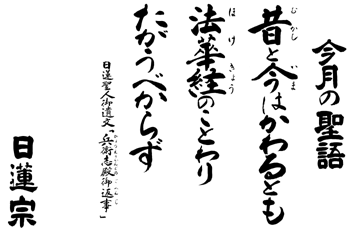 今月の聖語
昔と今はかわるとも
法華経のことわり
たがうべからず
日蓮聖人御遺文「兵衛志殿御返事」
日蓮宗